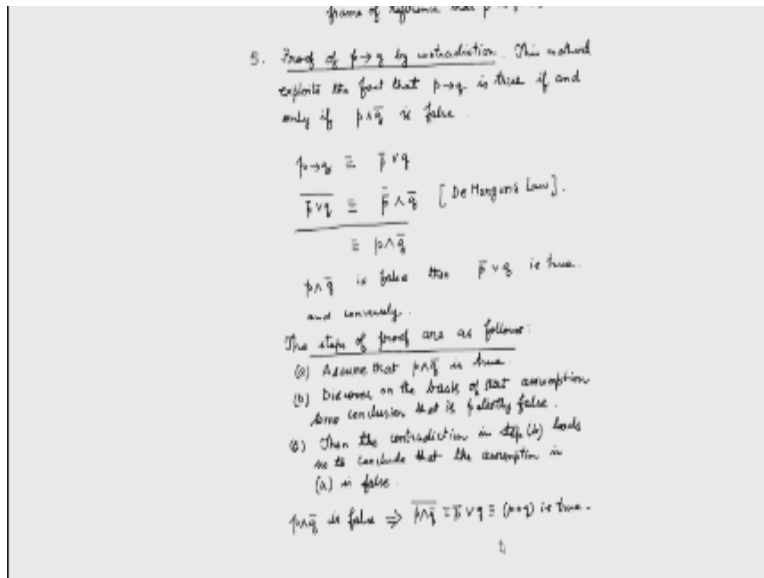 frame of reference that p
5. Proof of p→q by contradiction. This method
exploits the fact that p→q is true if and
only if p∧q̅ is false.
p→q ≡ p̅ ∨ q
\overline{p̅ ∨ q} ≡ \bar{p̅} ∧ q̅ [De Morgan's Law].
≡ p∧q̅
p∧q̅ is false then p̅ ∨ q is true.
and conversely.
The steps of proof are as follows:
(a) Assume that p∧q̅ is true.
(b) Discover on the basis of that assumption
some conclusion that is patently false.
(c) Then the contradiction in step (b) leads
us to conclude that the assumption in
(a) is false.
p∧q̅ is false ⇒ \overline{p∧q̅} ≡ p̅ ∨ q ≡ (p→q) is true.